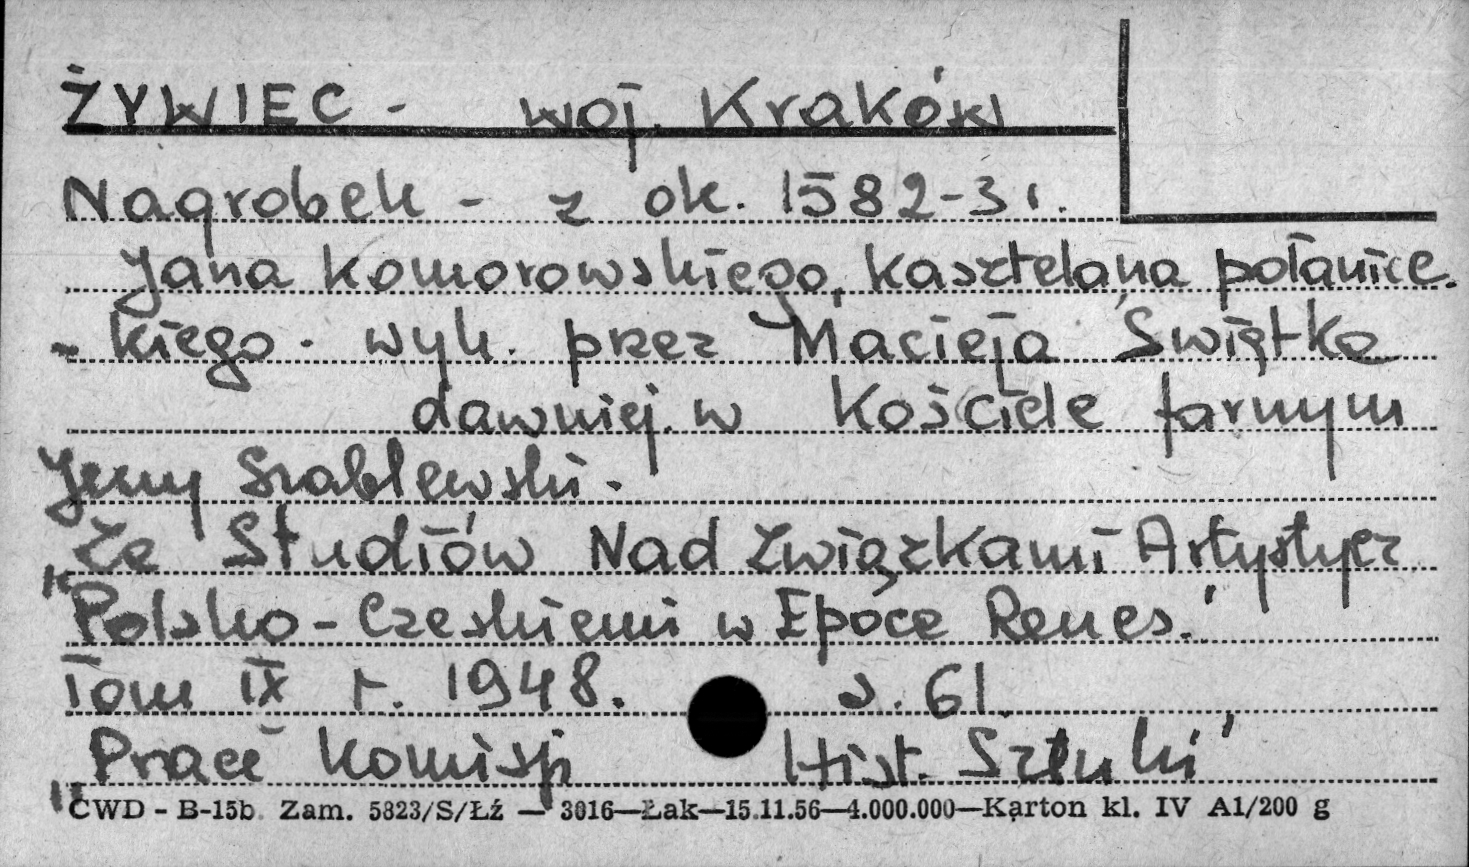 ŻYWIEC - woj. Kraków
Nagrobek - z ok. 1582-3 r.
Jana Komorowskiego, kasztelana połanice.
- kiego. wyk. przez Macieja Świątka
dawniej w Kościele farnym
Jerzy Szablewski.
Ze Studiów Nad Związkami Artystycz
"Polsko-Czeskiemi w Epoce Renes."
Tom IX r. 1948. s. 61.
"Prace Komisji Hist. Sztuki"
CWD - B-15b. Zam. 5823/S/Łź — 3016—Łak—15.11.56—4.000.000—Karton kl. IV A1/200 g